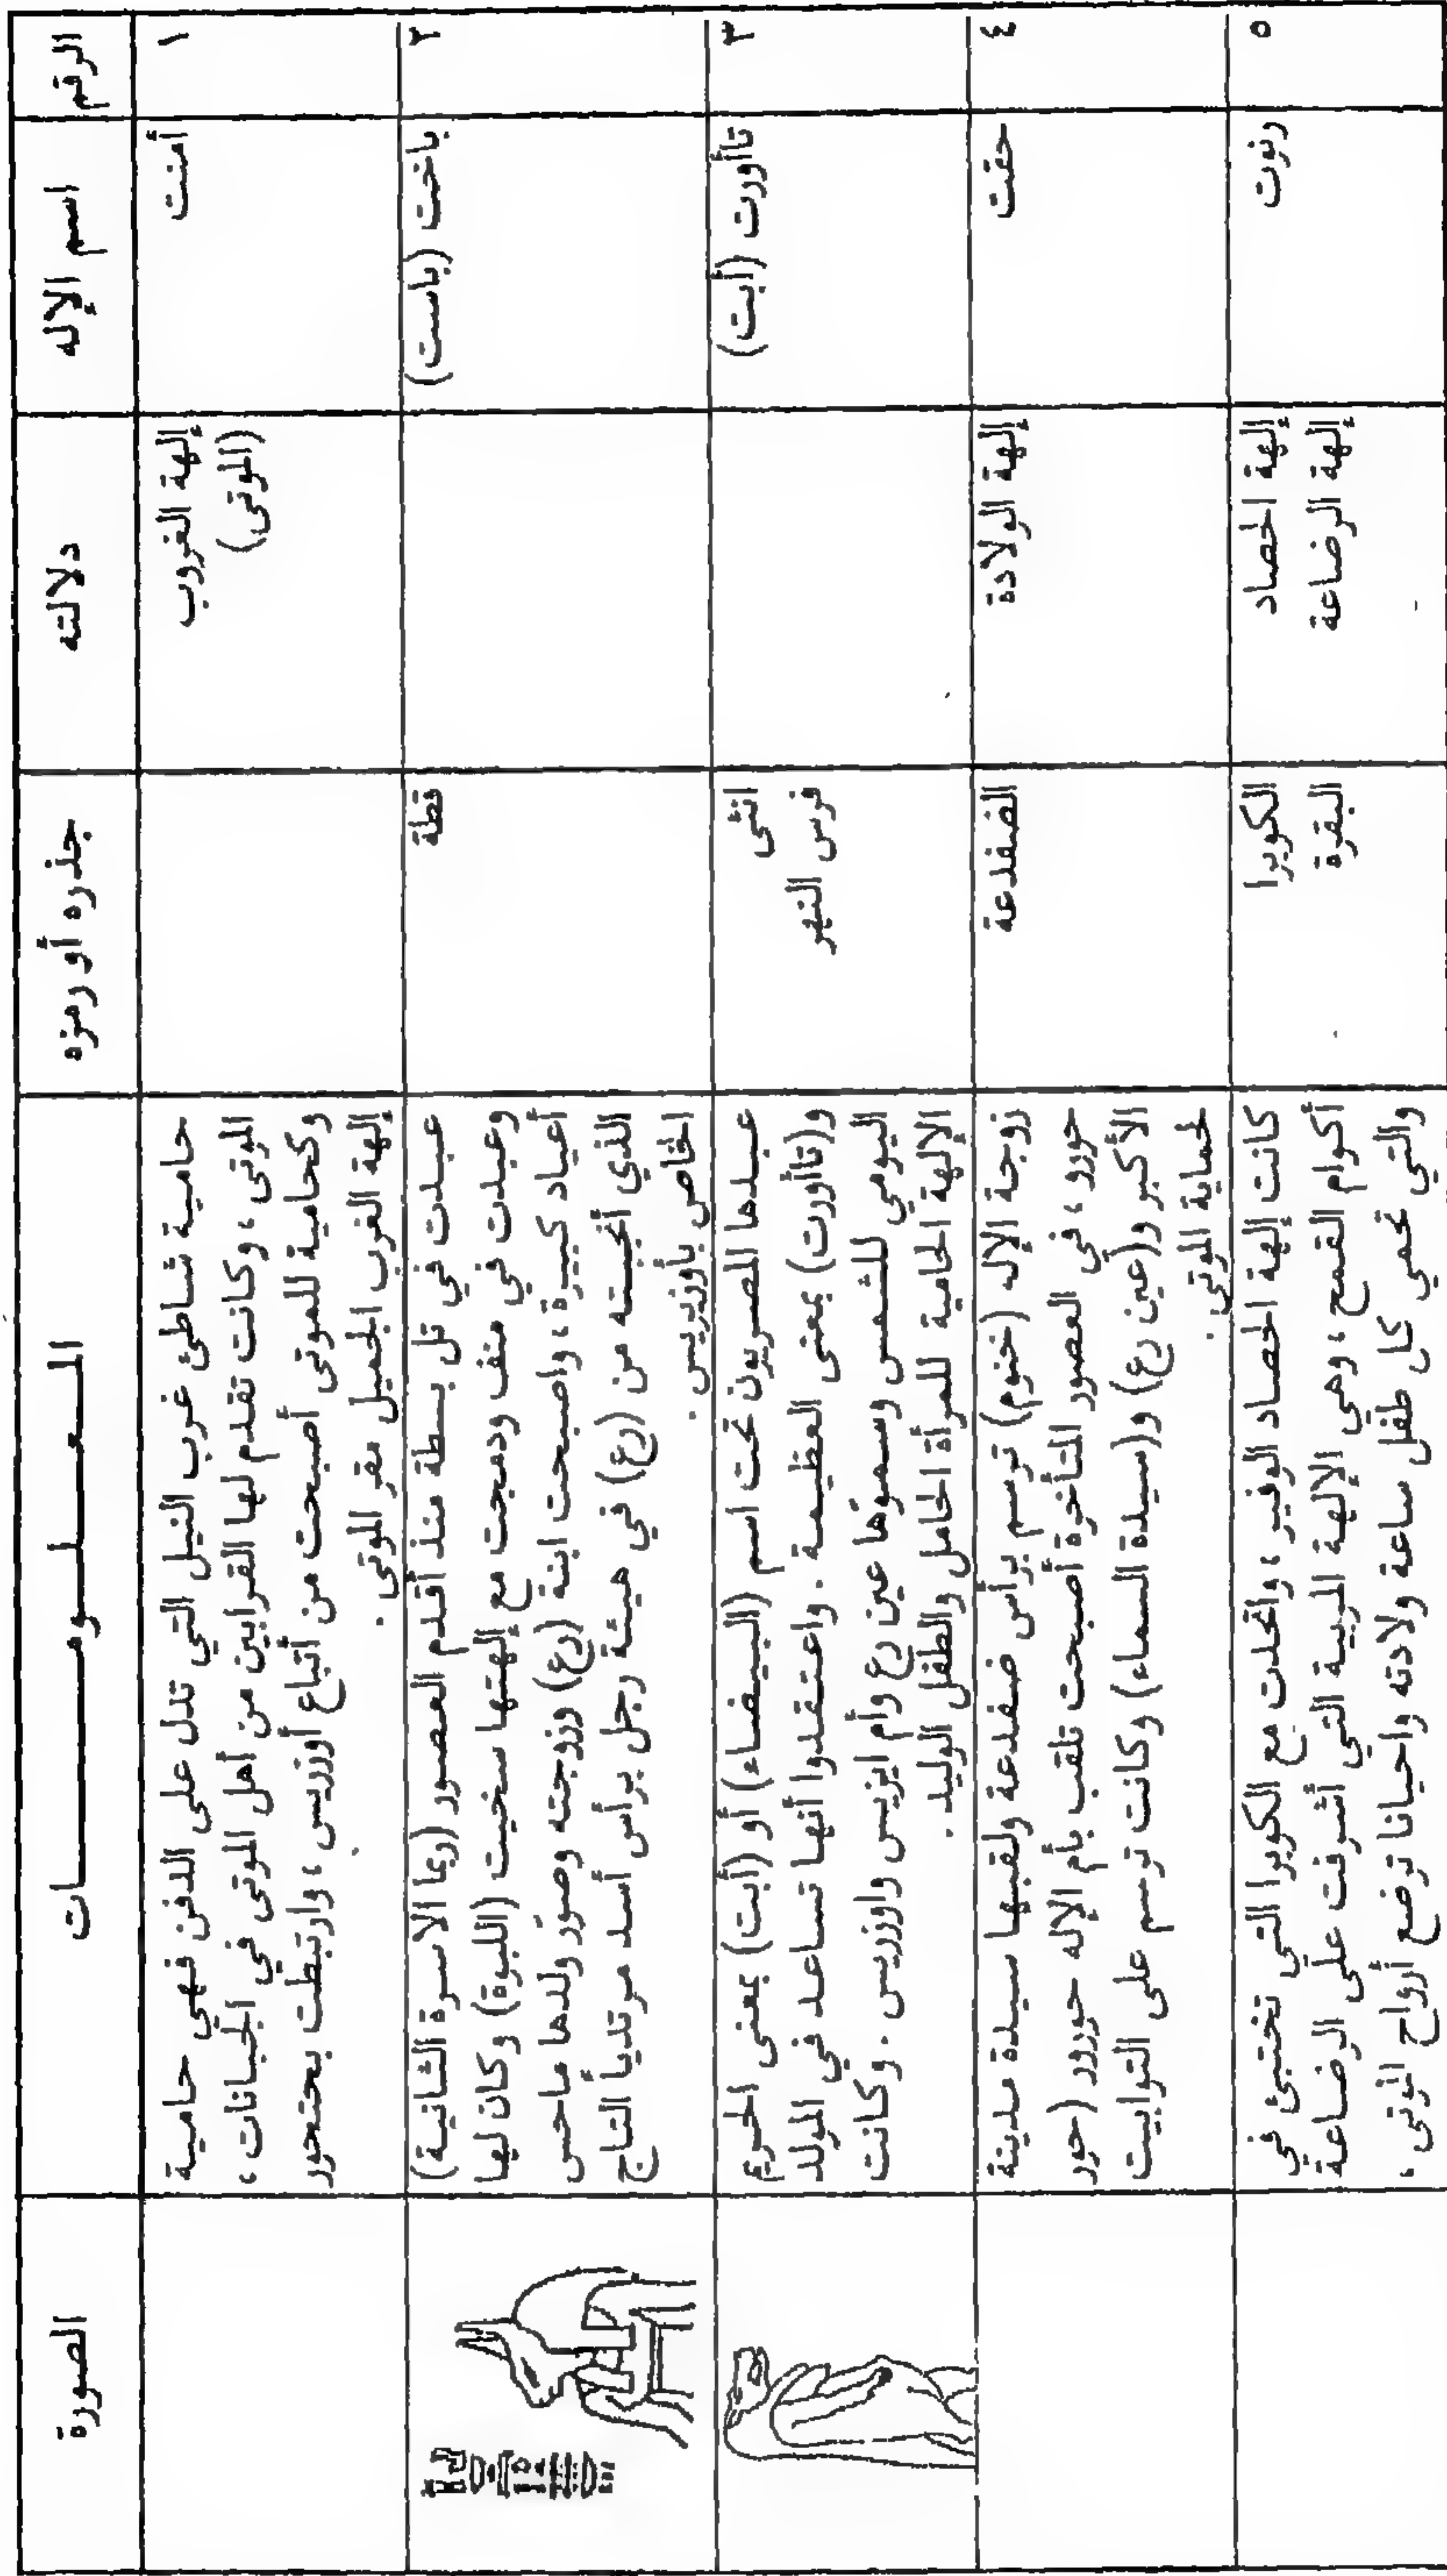 الرقم
اسم الإله
دلالته
جذره أو رمزه
المعلومات
الصورة
١
أمنت
إلهة الغروب
(الموتى)
حامية شاطئ غرب النيل التي تدل على الدفن فهي حامية
الموتى ، وكانت تقدم لها القرابين من أهل الموتى في الجبانات ،
وكحامية للموتى أصبحت من أتباع أوزريس ، وارتبطت بحتحور
إلهة الغرب الجميل مقر الموتى .
٢
باخت (باست)
قطة
عبدت في تل بسطة منذ أقدم العصور (ربما الاسرة الثانية)
وعبدت في منف ودمجت مع إلهتها سخيت (اللبوة) وكان لها
أعياد كبيرة ، واصبحت ابنة (رع) وزوجته وصوّر ولدها ماحس
الذي أنجبته من (رع) في هيئة رجل برأس أسد مرتدياً التاج
الخاص بأوزيريس .
٣
تاأورت (أبت)
انثى
فرس النهر
عبدها المصريون تحت اسم (البيضاء) أو (أبت) بمعنى الحريم
و(تاأورت) بمعنى العظيمة . واعتقدوا أنها تساعد في المولد
اليومي للشمس وسموّها عين رع وأم ايزيس واوزريس . وكانت
الإلهة الحامية للمرأة الحامل والطفل الوليد .
٤
حقت
إلهة الولادة
الضفدعة
زوجة الإله (خنوم) ترسم برأس ضفدعة ولقبها سيدة مدينة
حورو ، في العصور المتأخرة أصبحت تلقب بأم الإله حورور (حور
الأكبر و(أعين رع) و(سيدة السماء) وكانت ترسم على التوابيت
لحماية الموتى .
٥
رنوت
إلهة الحصاد
إلهة الرضاعة
الكوبرا
البقرة
كانت إلهة الحصاد الوفير ، واتحدت مع الكوبرا التي تختبئ في
أكوام القمح ، وهي الإلهة المربية التي أشرفت على الرضاعة
والتي تحمي كل طفل ساعة ولادته واحيانا ترضع أرواح الموتى ،